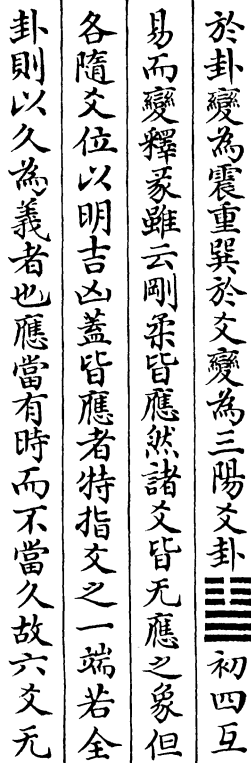 於卦變為震重巽於爻變為三陽爻卦䷊初四互
易而變釋彖雖云剛柔皆應然諸爻皆无應之象但
各隨爻位以明吉凶蓋皆應者特指爻之一端若全
卦則以久為義者也應當有時而不當久故六爻无